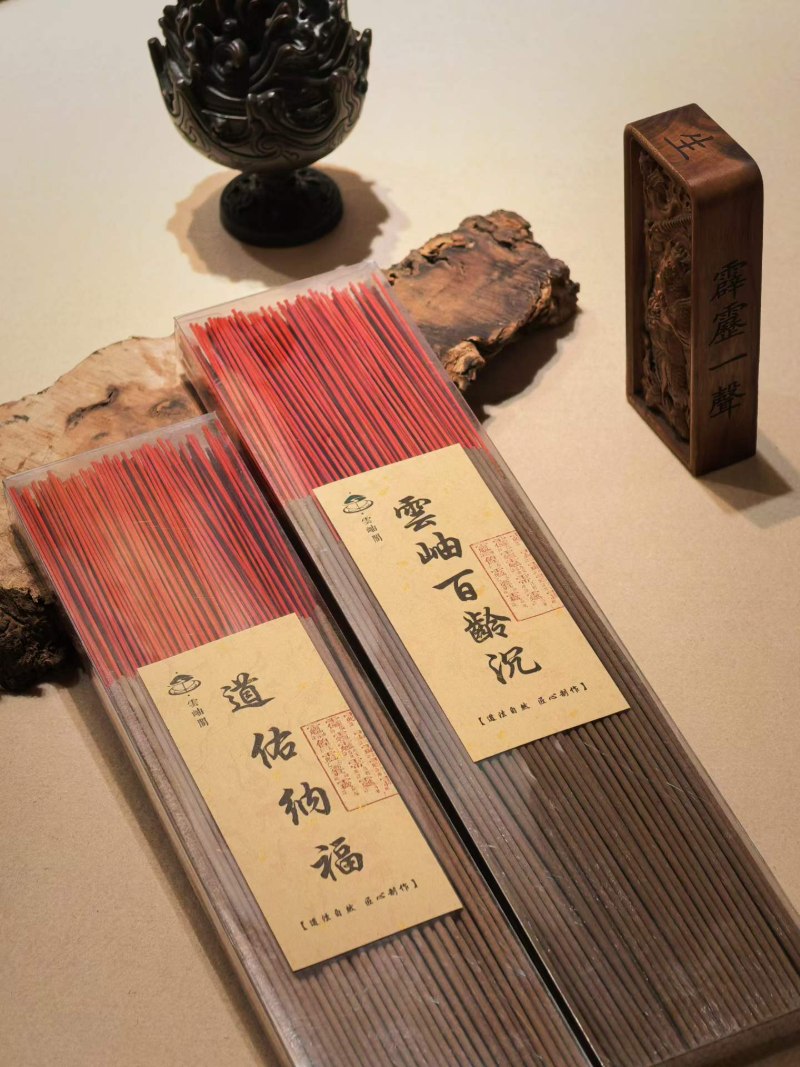 生
霹靂一聲
雲岫閣
雲岫百齡沉
【道法自然 匠心制作】
雲岫閣
道佑納福
【道法自然 匠心制作】